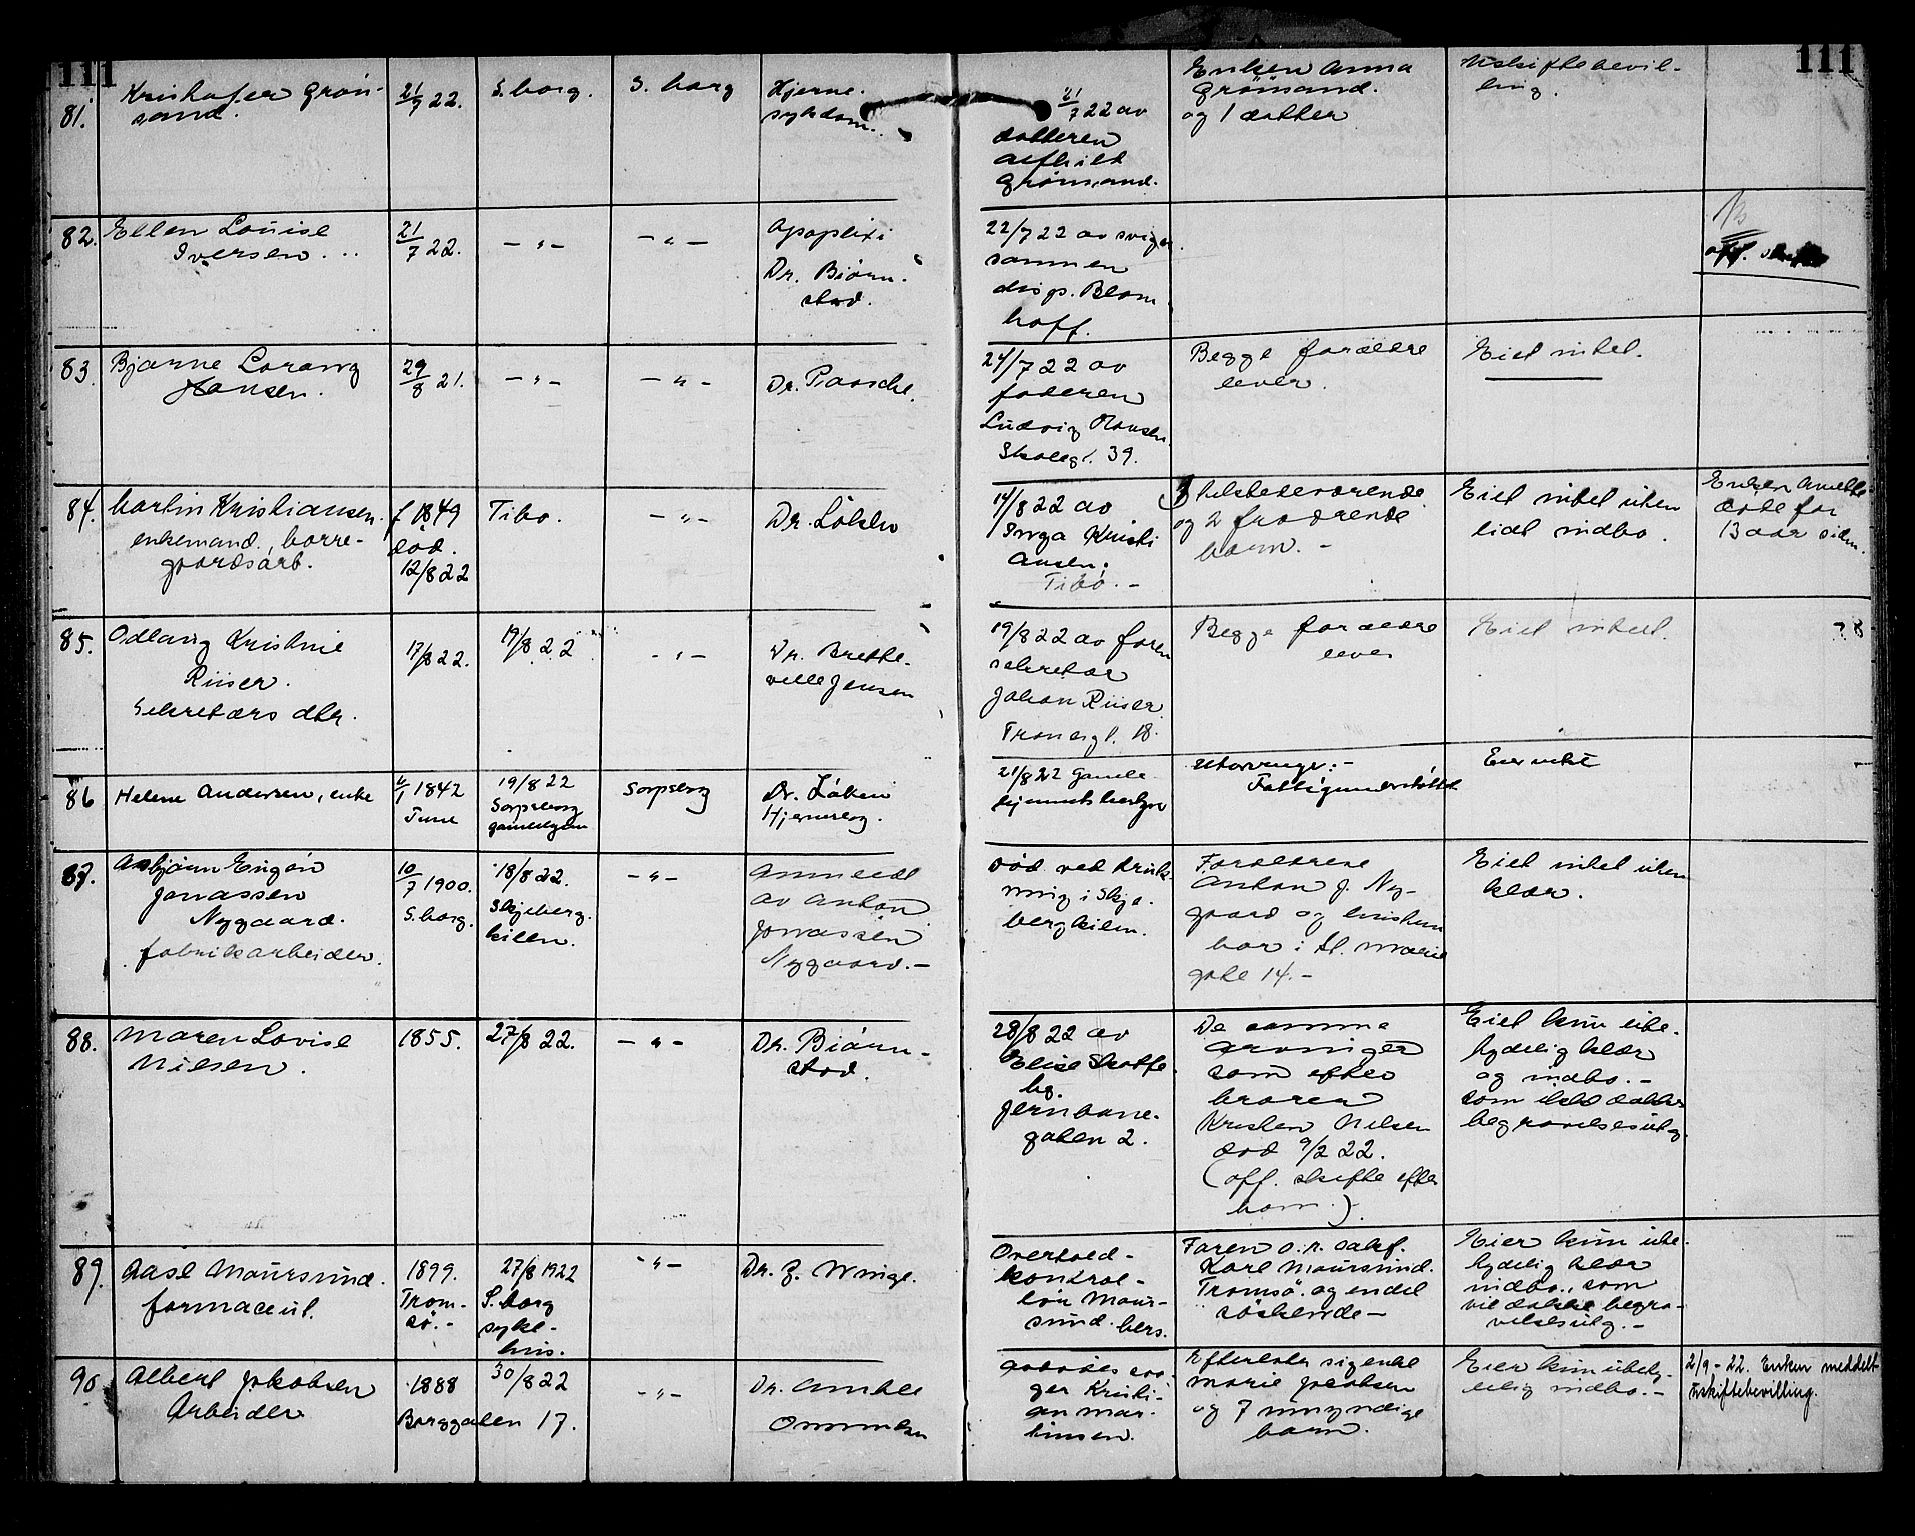 111
111
81.
Kristofer Grøn-
sand.
21/9 22.
S.borg.
S. borg
Hjerne-
sykdom.
21/7 22 av
datteren
Grønsand.
Enken Anna
Grønsand.
og 1 datter
Uskiftebevil-
ling.
82.
Ellen Louise
Iversen...
21/7 22.
— " —
— " —
Apoplexi
Dr. Biørn-
stad.
22/7 22 av sviger
sønnen
disp. Blom
hoff.
off. skifte
83.
Bjarne Lorang
Hansen.
29/8 21.
— " —
— " —
Dr. Paasche.
24/7 22 av
faderen
Ludvig Hansen
Skolegt. 39.
Begge forældre
lever.
Eiet intet.
84.
Martin Kristiansen.
enkemand, borre-
gaardsarb.
f 1849
død.
12/8 22
Tibo.
— " —
Dr.
14/8 22 av
Inga Kristi
ansen.
Tibo. —
3 tilstedeværende
og 2 fraværende
barn. —
Eiet intet uten
lidt indbo.
Enken Anette
døde for
13 aar siden.
85.
Odlaug Kristine
Riiser.
Sekretærs dtr.
17/8 22.
19/8 22
— " —
Dr. Brette-
ville Jensen
19/8 22 av faren
sekretær
Johan Riiser
Tronesgt. 18.
Begge forældre
lever
Eiet intet.
86
Helene Andersen, enke
4/1 1842
Tune
19/8 22
Sarpsborg
gamlehjem
Sarpsborg
Dr. Løken
Hjernesbg.
21/8 22 Gamle
hjemmets bestyrer
Utarvinger: —
Fattigunderstøttet
Eier intet
87.
Asbjørn Eugen
Jonassen
Nygaard.
fabrikarbeider.
10/7 1900.
S.borg.
18/8 22.
Skjeberg-
kilen.
— " —
Anmeldt
av Anton
Jonassen
Nygaard. —
død ved druk-
ning i Skje-
bergkilen.
Forældrene
Anton J. Ny-
gaard og hustru
bor i St. Marie
gate 14. —
Eiet intet uten
klær.
88.
Maren Lovise
Nilsen.
1855.
27/8 22.
— " —
Dr. Biørn-
stad.
28/8 22 av
Elise Skofte
by.
Jernbane-
gaten 2.
De samme
arvinger
som efter
broren
Kristen Nilsen
død 9/2 22.
(off. skifte efter
ham.)
Eiet kun ube-
tydelig klær
og indbo. —
som ikke dækker
begravelsesutg.
89.
Aase Maursund.
farmaceut.
1899.
Trom-
sø. —
27/8 1922
S.borg
syke-
hus.
— " —
Dr. Z. Winge.
Overtold-
kontrol-
lør Maur-
sund. hers.
Faren o.r.sakf.
Karl Maursund.
Tromsø. og endel
søskende —
Eier kun ube-
tydelig klær
indbo., som
vil dække begra-
velsesutg. —
90
Albert Jakobsen
Arbeider
1888
Borggaten 17.
30/8 22
— " —
Dr. Anthel
Ommelsen
ger Kristi-
an Mar-
tinsen.
Efterlater sig enke
Marie Jacobsen
og 7 umyndige
barn.
Eier kun ubety-
delig indbo. —
2/9 - 22. Enken meddelt
uskiftebevilling.